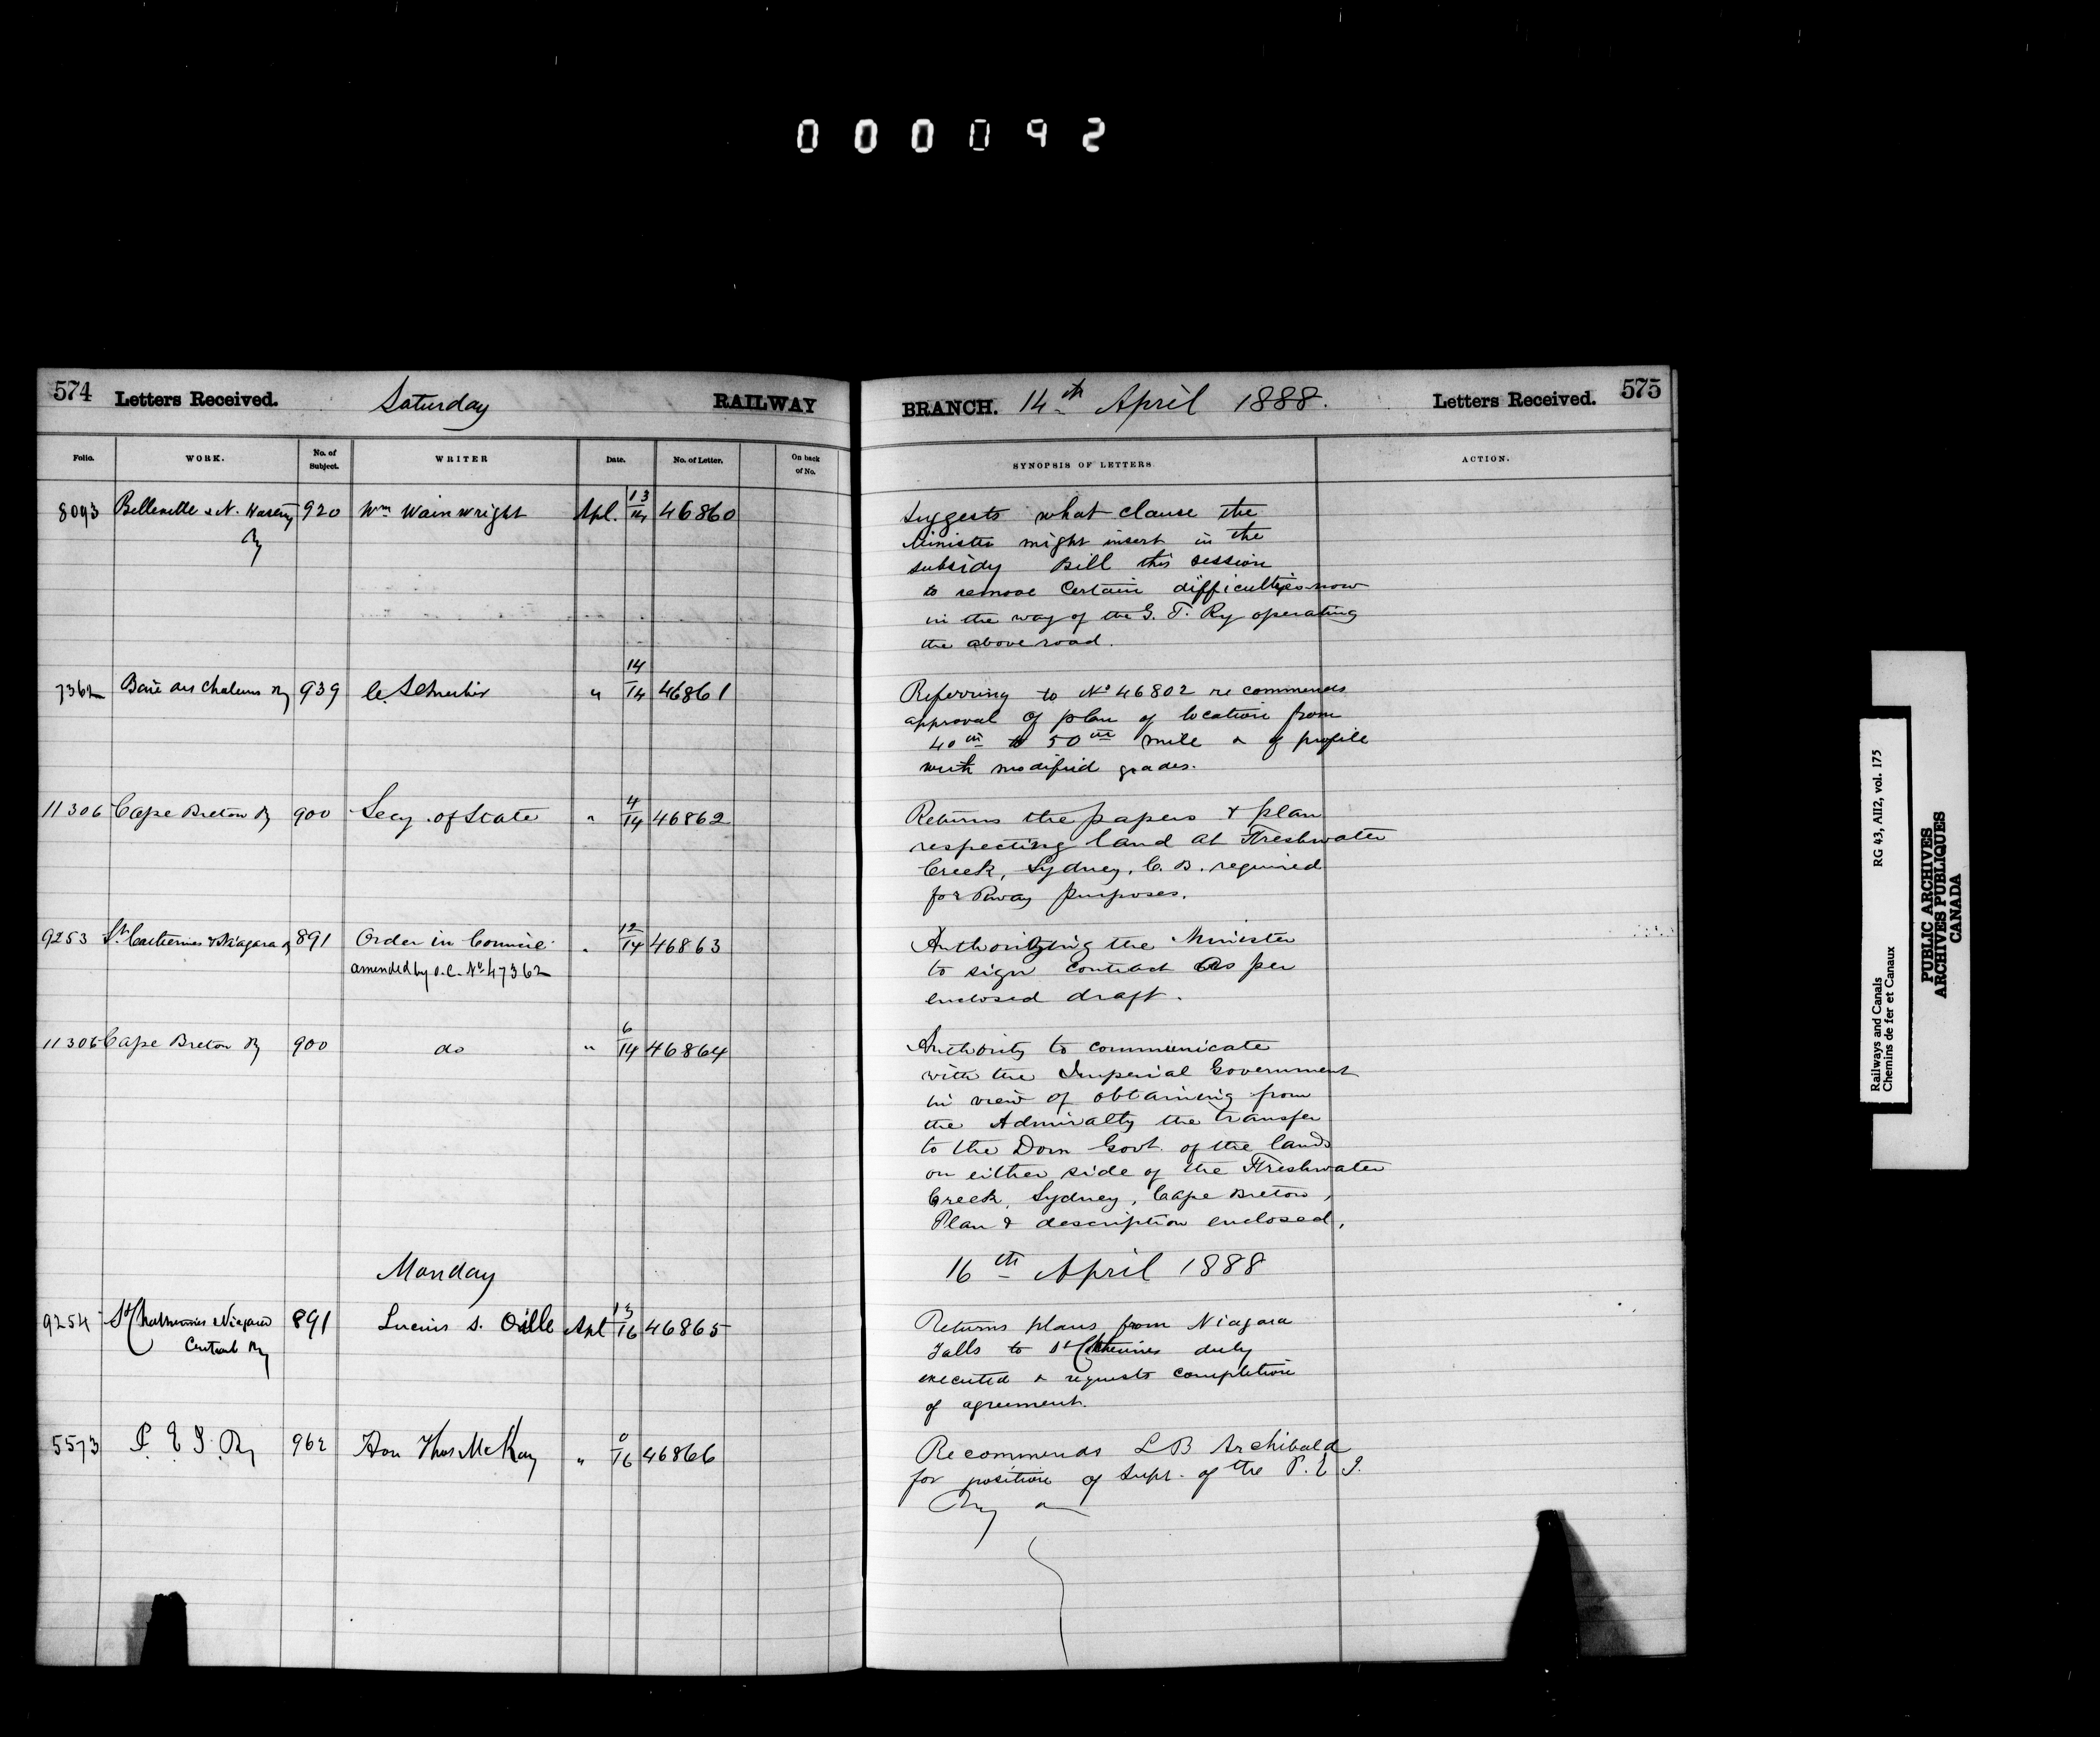 000092
574 Letters Received. Saturday RAILWAY
BRANCH. 14th April 1888. Letters Received. 575
Folio. WORK. No. of Subject. WRITER Date. No. of Letter. On back of No.
SYNOPSIS OF LETTERS ACTION.
8093 Belleville & N. Hastings 920 Wm Wainwright Apl. 13/14 46860
Ry
Suggests what clause the
Minister might insert in the
subsidy Bill this session
to remove Certain difficulties now
in the way of the G. T. Ry operating
the above road.
7362 Baie des Chaleurs Ry 939 C. Schreiber " 14/14 46861
Referring to No 46802 recommends
approval of plan of location from
40th to 50th mile & of profile
with modified grades.
11306 Cape Breton Ry 900 Secy. of State " 4/14 46862
Returns the papers & plan
respecting land at Freshwater
Creek, Sydney, C. B. required
for Rway purposes.
9253 St. Catherines & Niagara Ry 891 Order in Council " 12/14 46863
amended by O.C. No. 47362
Authorizing the Minister
to sign contract as per
enclosed draft.
11306 Cape Breton Ry 900 do " 6/14 46864
Authority to communicate
with the Imperial Government
in view of obtaining from
the Admiralty the transfer
to the Dom Govt. of the lands
on either side of the Freshwater
Creek, Sydney, Cape Breton,
Plan & description enclosed.
Monday 16th April 1888
9254 St Catherines & Niagara 891 Lucius S. Oille Apl 13/16 46865
Central Ry
Returns plans from Niagara
Falls to St Catherines duly
executed & requests completion
of agreement.
5573 P. E. I. Ry 962 Hon Thos McKay " 0/16 46866
Recommends L B Archibald
for position of Supt. of the P. E. I.
Ry
Railways and Canals RG 43, AII2, vol. 175
Chemins de fer et Canaux
PUBLIC ARCHIVES
ARCHIVES PUBLIQUES
CANADA